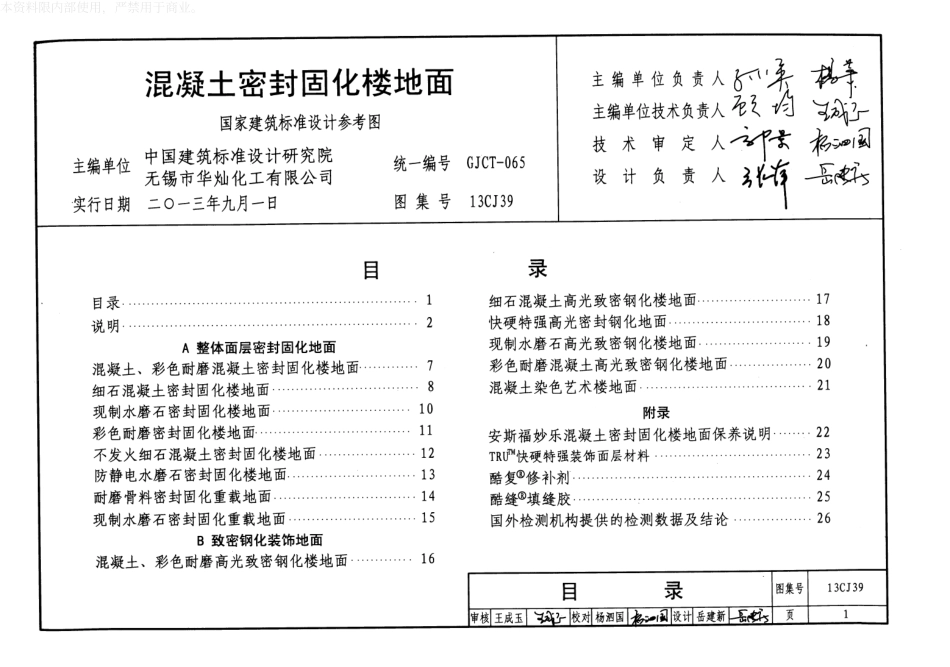 本资料限内部使用，严禁用于商业。
混凝土密封固化楼地面
国家建筑标准设计参考图
主编单位 中国建筑标准设计研究院
无锡市华灿化工有限公司
统一编号 GJCT-065
实行日期 二〇一三年九月一日
图集号 13CJ39
主编单位负责人
主编单位技术负责人
技术审定人
设计负责人
目 录
目录 1
说明 2
A 整体面层密封固化地面
混凝土、彩色耐磨混凝土密封固化楼地面 7
细石混凝土密封固化楼地面 8
现制水磨石密封固化楼地面 10
彩色耐磨密封固化楼地面 11
不发火细石混凝土密封固化楼地面 12
防静电水磨石密封固化楼地面 13
耐磨骨料密封固化重载地面 14
现制水磨石密封固化重载地面 15
B 致密钢化装饰地面
混凝土、彩色耐磨高光致密钢化楼地面 16
细石混凝土高光致密钢化楼地面 17
快硬特强高光密封钢化地面 18
现制水磨石高光致密钢化楼地面 19
彩色耐磨混凝土高光致密钢化楼地面 20
混凝土染色艺术楼地面 21
附录
安斯福妙乐混凝土密封固化楼地面保养说明 22
TRU™快硬特强装饰面层材料 23
酷复®修补剂 24
酷缝®填缝胶 25
国外检测机构提供的检测数据及结论 26
目 录 图集号 13CJ39
审核 王成玉 校对 杨泗国 设计 岳建新 页 1